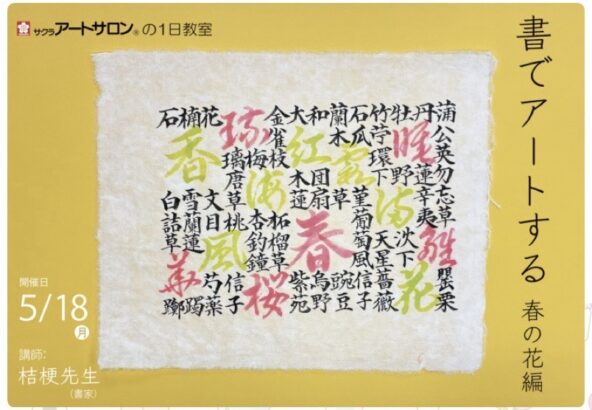 サクラアートサロン®の1日教室
書でアートする 春の花編
蒲公英勿忘草罌粟
丹睡蓮辛夷
牡野沈下花
竹苧環下満天星薔薇
石瓜菫葡萄風信子
蘭木草豌豆
和紅団扇烏野
大木蓮春紫苑
金雀枝海柘榴草
梅杏釣鐘桜
琉璃唐草桃信子
花文目風芍薬
楠香雪蘭蓮躅
石白詰草華躑
開催日
5/18
月
講師:
桔梗先生
(書家)